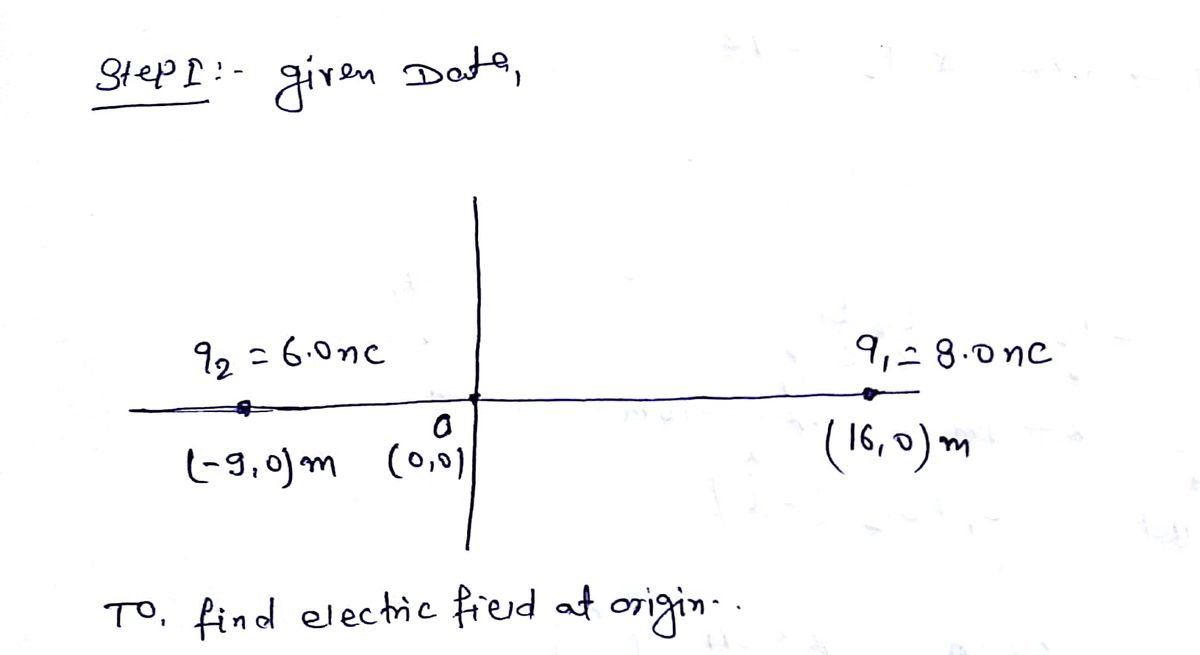 Step I :- given Data,
q2 = 6.0nc q1 = 8.0nc
0
(-9,0)m (0,0) (16,0)m
TO, find electric field at origin..